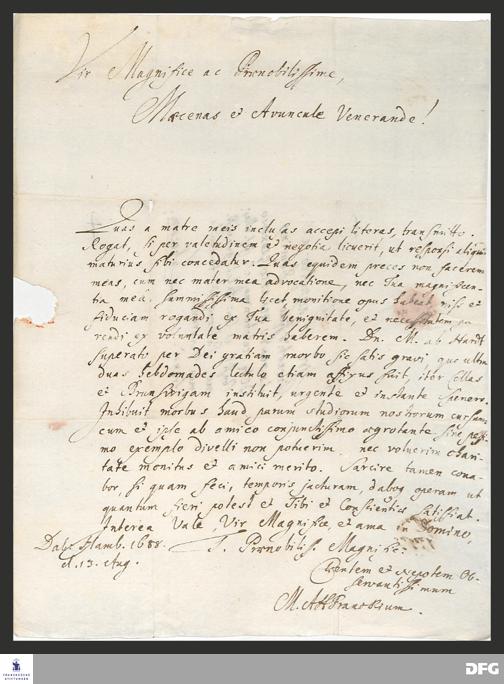 Vir Magnifice ac Prænobilissime,
Mæcenas et Avuncule Venerande!
Quas a matre meis inclusas accepi literas, transmitto.
Rogat, si per valetudinem et negotia licuerit, ut responsi aliquid
maturius sibi concedatur. Quas equidem preces non facerem
meas, cum nec mater mea advocatione, nec Tua magnificen-
tia mea, summississima licet, monitione opus habeat, nisi et
fiduciam rogandi ex Tua benignitate, et necessitatem pa-
rendi ex voluntate matris haberem. Dn. M. ab Hardt
superato per Dei gratiam morbo sic satis gravi quo ultra
duas hebdomades lectulo etiam affixus fuit, iter Cellas
et Brunsvigam instituit, urgente et instante Spenero.
Inhibuit morbus haud parum studiorum nostrorum cursum,
cum et ipse ab amico conjunctissimo ægrotante sine pessi-
mo exemplo divelli non potuerim, nec voluerim chari-
tate monitus et amici merito. Sarcire tamen cona-
bor, si quam feci, temporis jacturam, daboq operam ut
quantum fieri potest et Tibi et Conscientiæ satisfiat.
Interea Vale Vir Magnifice, et ama in Domino,
Dab. Hamb. 1688.
d. 13. Aug.
T. Prænobiliss. Magnific.
Clientem et Nepotem Ob-
servantissimum
M. AHFranckium.
FRANCKESCHE
STIFTUNGEN
DFG